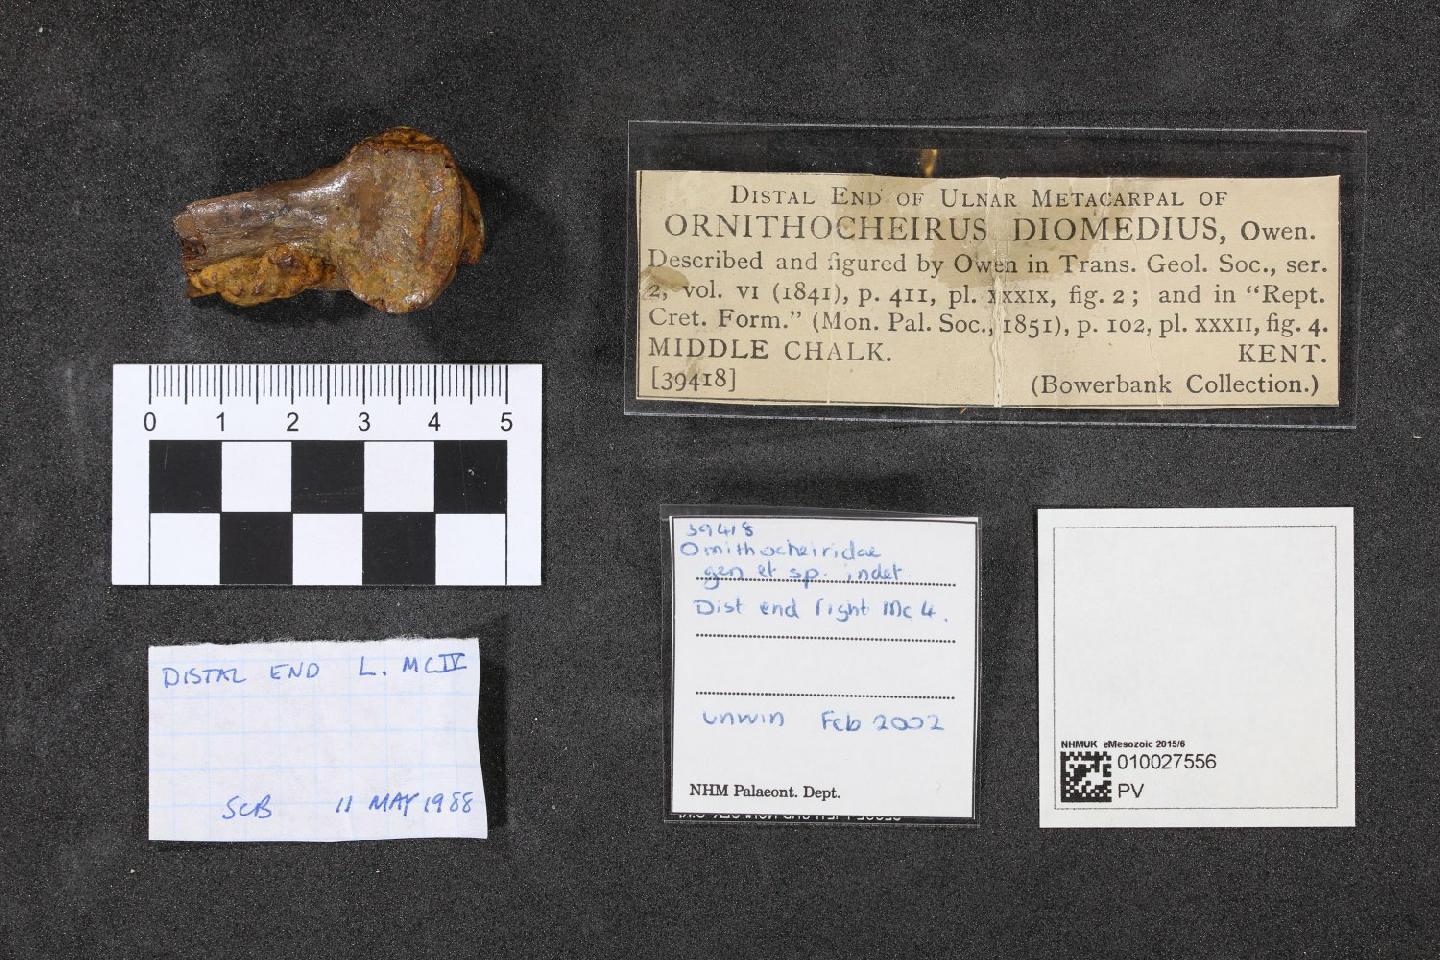 DISTAL END OF ULNAR METACARPAL OF
ORNITHOCHEIRUS DIOMEDIUS, Owen.
Described and figured by Owen in Trans. Geol. Soc., ser.
2, vol. VI (1841), p. 411, pl. XXXIX, fig. 2; and in "Rept.
Cret. Form." (Mon. Pal. Soc., 1851), p. 102, pl. XXXII, fig. 4.
MIDDLE CHALK. KENT.
[39418] (Bowerbank Collection.)
0 1 2 3 4 5
39418
Ornithocheiridae
gen et sp. indet
Dist end right Mc 4.
Unwin Feb 2002
NHM Palaeont. Dept.
DISTAL END L. MC IV
SCB 11 MAY 1988
NHMUK eMesozoic 2015/6
010027556
PV